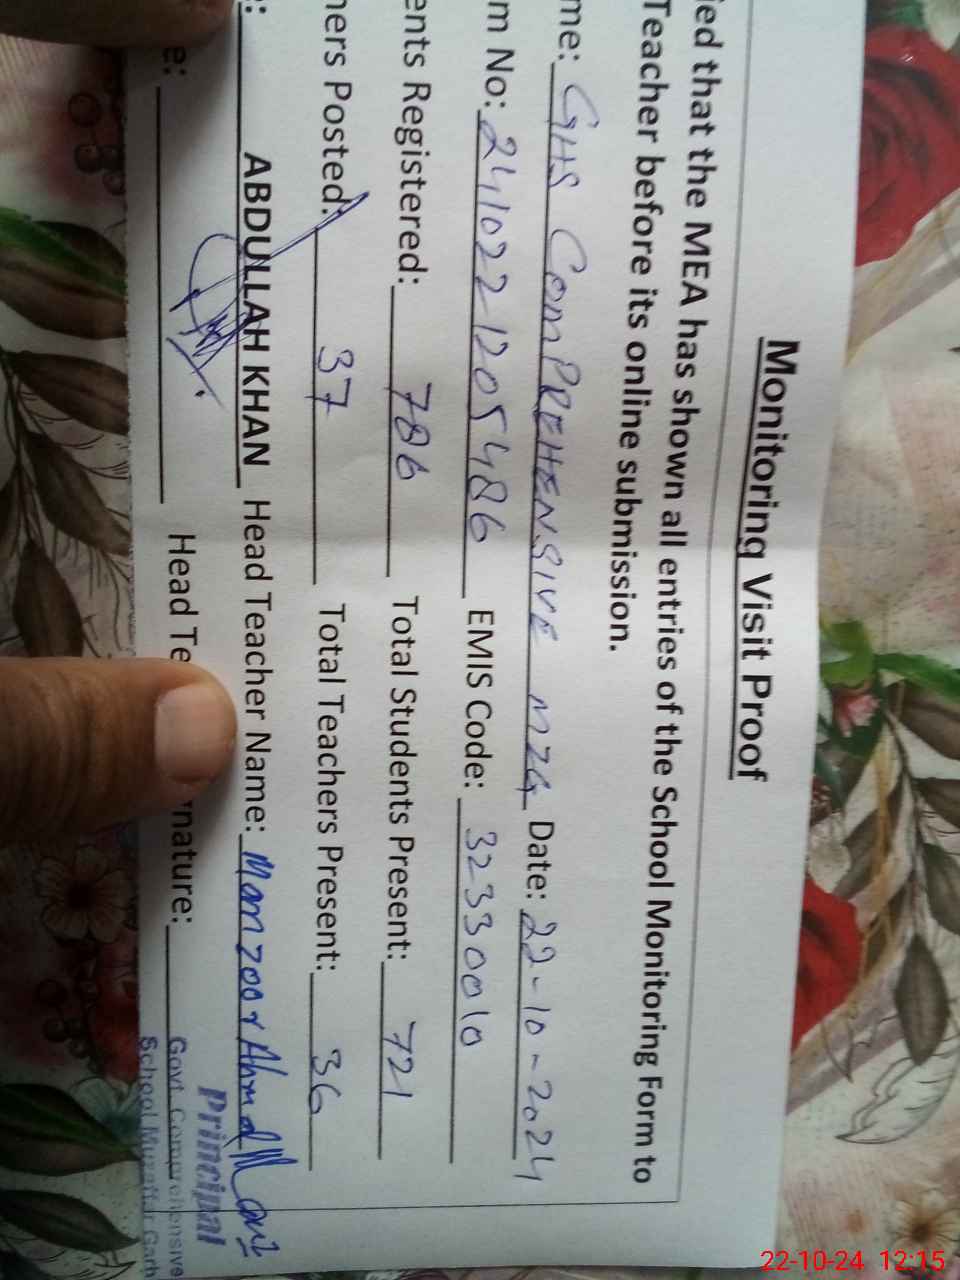 Monitoring Visit Proof
ied that the MEA has shown all entries of the School Monitoring Form to
Teacher before its online submission.
me: GHS COMPREHENSIVE MZG Date: 22-10-2024
m No: 241022-1205486 EMIS Code: 32330010
ents Registered: 786 Total Students Present: 721
hers Posted: 37 Total Teachers Present: 36
e: ABDULLAH KHAN Head Teacher Name: Manzoor Ahmad
e: Head Te nature:
Principal
Govt. Comprehensive
School Muzaffar Garh
22-10-24 12:15